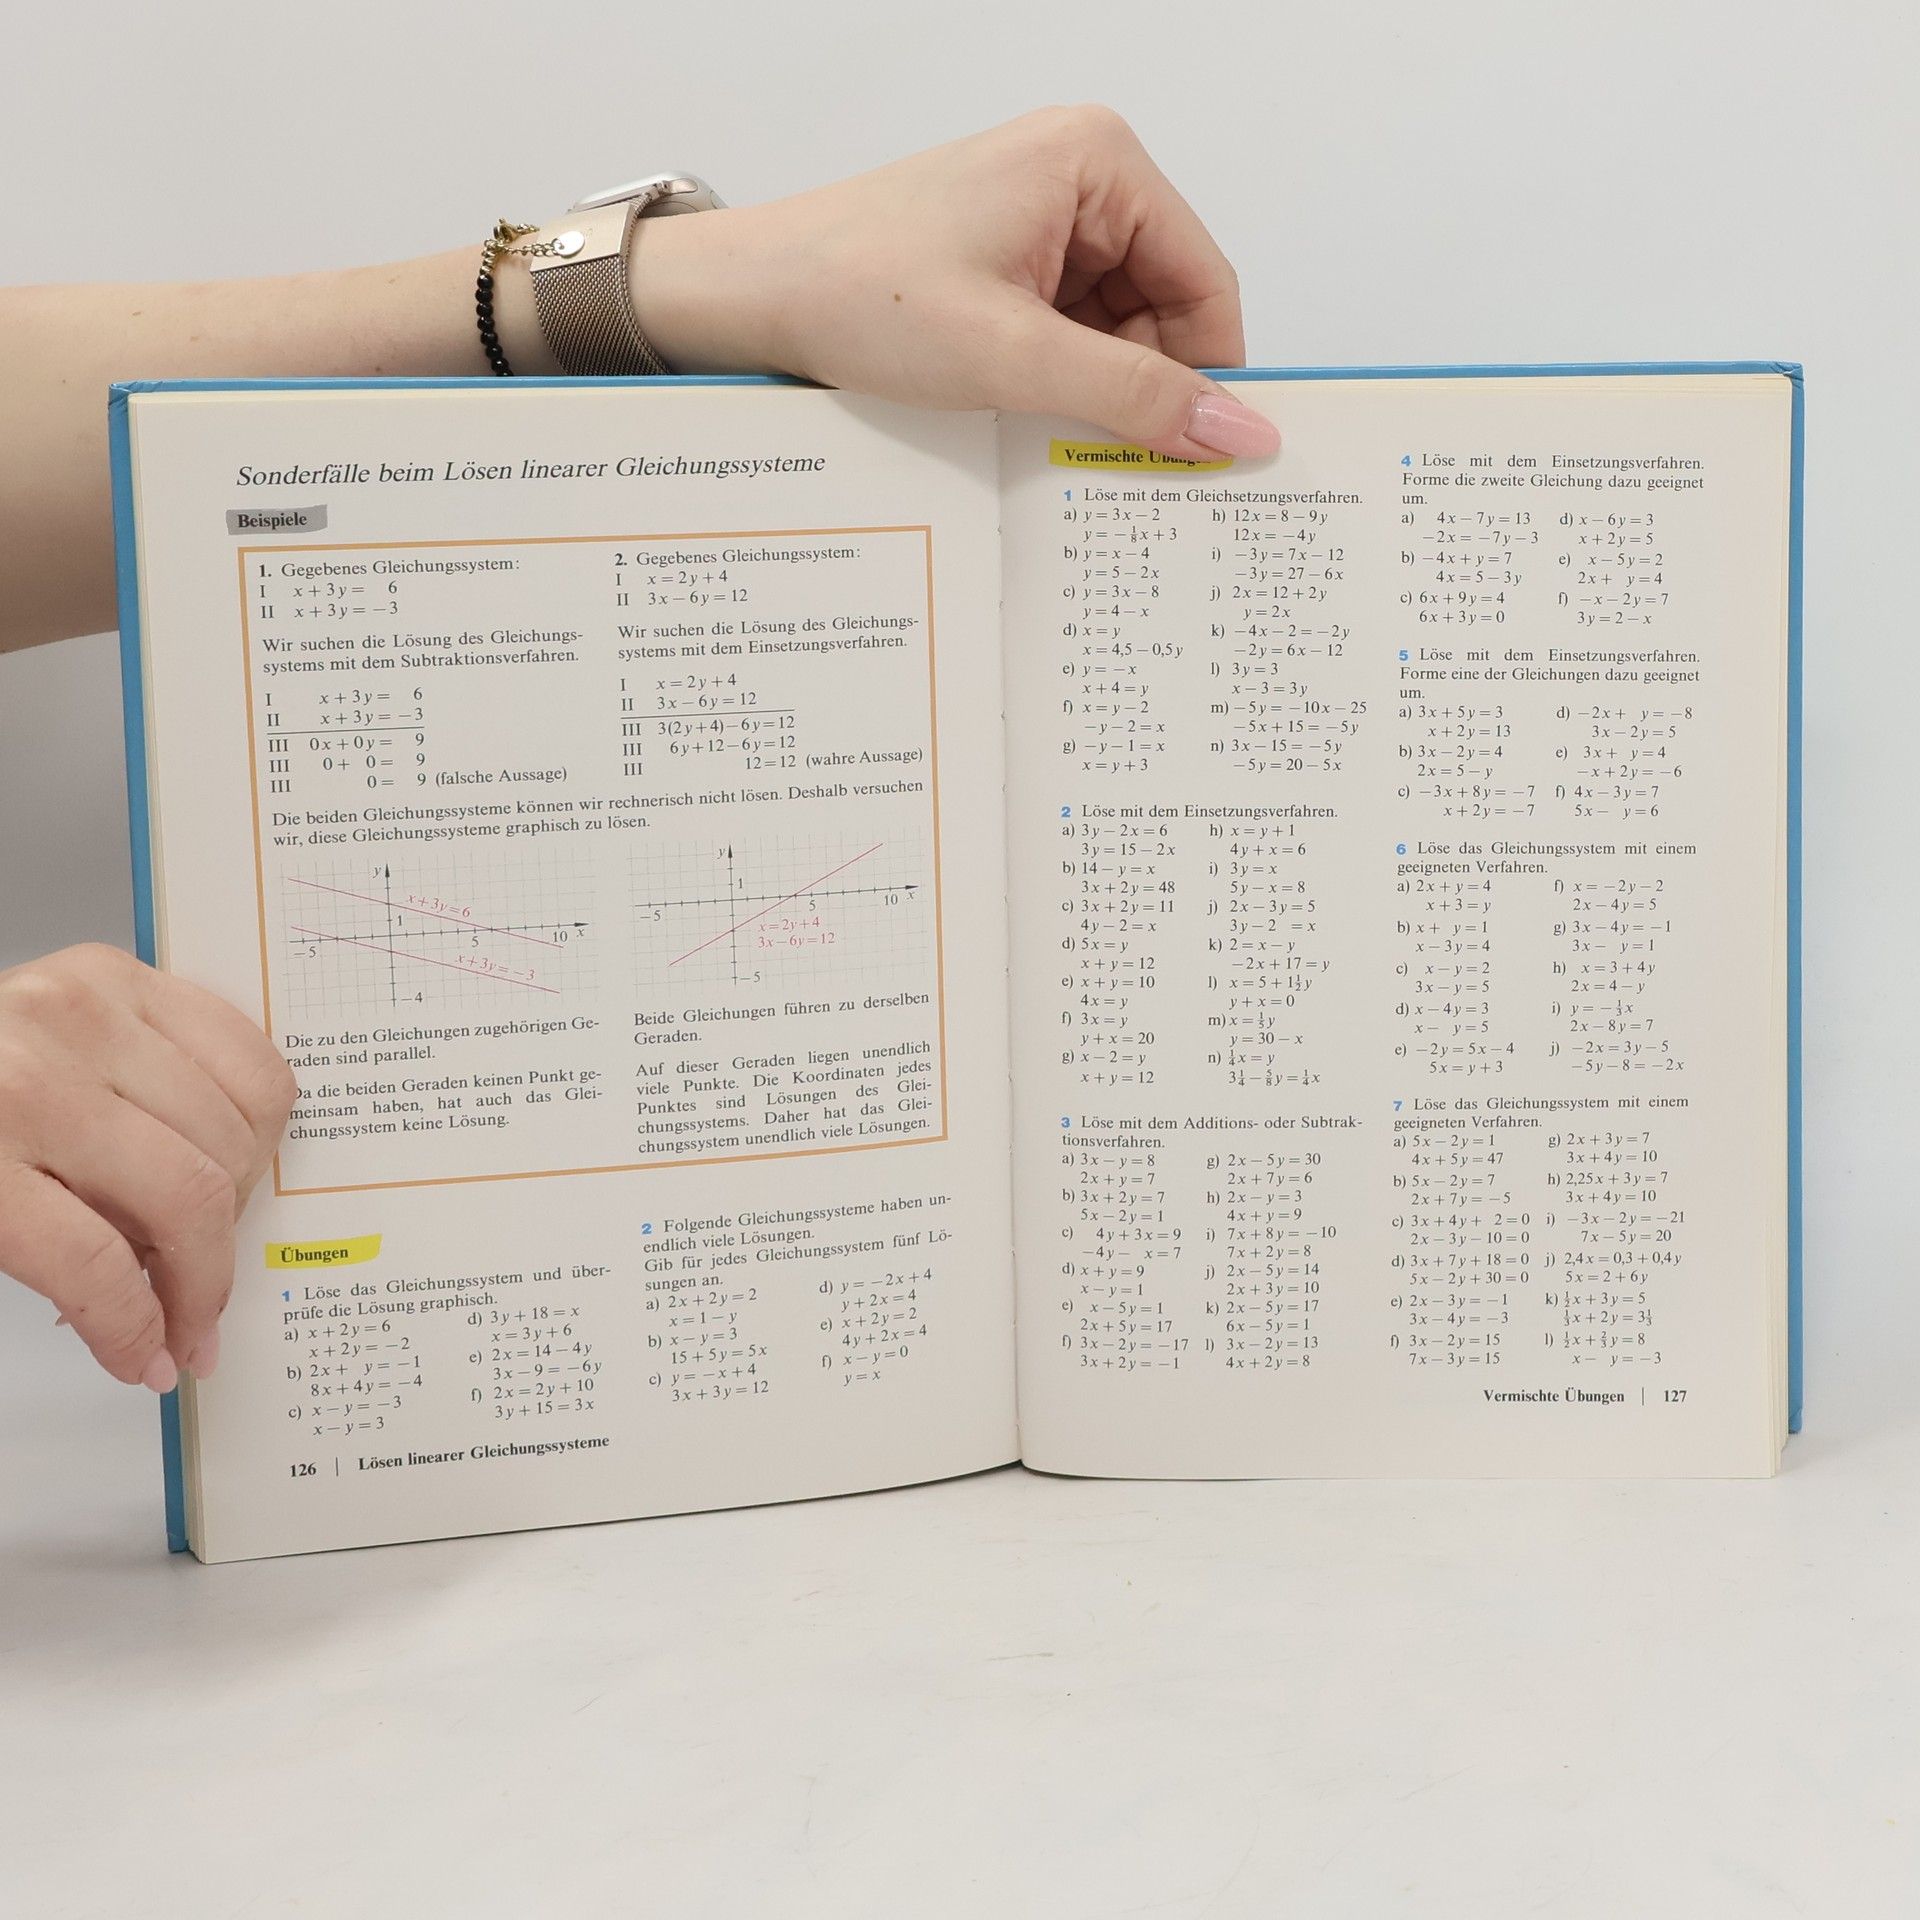 Sonderfälle beim Lösen linearer Gleichungssysteme
Beispiele
1. Gegebenes Gleichungssystem:
I x + 3y = 6
II x + 3y = −3
Wir suchen die Lösung des Gleichungs-
systems mit dem Subtraktionsverfahren.
I x + 3y = 6
II x + 3y = −3
III 0x + 0y = 9
III 0 + 0 = 9
III 0 = 9 (falsche Aussage)
2. Gegebenes Gleichungssystem:
I x = 2y + 4
II 3x − 6y = 12
Wir suchen die Lösung des Gleichungs-
systems mit dem Einsetzungsverfahren.
I x = 2y + 4
II 3x − 6y = 12
III 3(2y+4)−6y=12
III 6y+12−6y=12
III 12=12 (wahre Aussage)
Die beiden Gleichungssysteme können wir rechnerisch nicht lösen. Deshalb versuchen
wir, diese Gleichungssysteme graphisch zu lösen.
y
x+3y=6
1
−5 5 10 x
x+3y=−3
−4
y
1
−5 5 10 x
x=2y+4
3x−6y=12
−5
Die zu den Gleichungen zugehörigen Ge-
raden sind parallel.
Da die beiden Geraden keinen Punkt ge-
meinsam haben, hat auch das Glei-
chungssystem keine Lösung.
Beide Gleichungen führen zu derselben
Geraden.
Auf dieser Geraden liegen unendlich
viele Punkte. Die Koordinaten jedes
Punktes sind Lösungen des Glei-
chungssystems. Daher hat das Glei-
chungssystem unendlich viele Lösungen.
Übungen
1 Löse das Gleichungssystem und über-
prüfe die Lösung graphisch.
a) x + 2y = 6
x + 2y = −2
b) 2x + y = −1
8x + 4y = −4
c) x − y = −3
x − y = 3
d) 3y + 18 = x
x = 3y + 6
e) 2x = 14 − 4y
3x − 9 = −6y
f) 2x = 2y + 10
3y + 15 = 3x
2 Folgende Gleichungssysteme haben un-
endlich viele Lösungen.
Gib für jedes Gleichungssystem fünf Lö-
sungen an.
a) 2x + 2y = 2
x = 1 − y
b) x − y = 3
15 + 5y = 5x
c) y = −x + 4
3x + 3y = 12
d) y = −2x + 4
y + 2x = 4
e) x + 2y = 2
4y + 2x = 4
f) x − y = 0
y = x
126 | Lösen linearer Gleichungssysteme
Vermischte
1 Löse mit dem Gleichsetzungsverfahren.
a) y = 3x − 2
y = −⅛x + 3
b) y = x − 4
y = 5 − 2x
c) y = 3x − 8
y = 4 − x
d) x = y
x = 4,5 − 0,5y
e) y = −x
x + 4 = y
f) x = y − 2
−y − 2 = x
g) −y − 1 = x
x = y + 3
h) 12x = 8 − 9y
12x = −4y
i) −3y = 7x − 12
−3y = 27 − 6x
j) 2x = 12 + 2y
y = 2x
k) −4x − 2 = −2y
−2y = 6x − 12
l) 3y = 3
x − 3 = 3y
m) −5y = −10x − 25
−5x + 15 = −5y
n) 3x − 15 = −5y
−5y = 20 − 5x
2 Löse mit dem Einsetzungsverfahren.
a) 3y − 2x = 6
3y = 15 − 2x
b) 14 − y = x
3x + 2y = 48
c) 3x + 2y = 11
4y − 2 = x
d) 5x = y
x + y = 12
e) x + y = 10
4x = y
f) 3x = y
y + x = 20
g) x − 2 = y
x + y = 12
h) x = y + 1
4y + x = 6
i) 3y = x
5y − x = 8
j) 2x − 3y = 5
3y − 2 = x
k) 2 = x − y
−2x + 17 = y
l) x = 5 + 1½y
y + x = 0
m) x = ⅕y
y = 30 − x
n) ¼x = y
3¼ − ⅝y = ¼x
3 Löse mit dem Additions- oder Subtrak-
tionsverfahren.
a) 3x − y = 8
2x + y = 7
b) 3x + 2y = 7
5x − 2y = 1
c) 4y + 3x = 9
−4y − x = 7
d) x + y = 9
x − y = 1
e) x − 5y = 1
2x + 5y = 17
f) 3x − 2y = −17
3x + 2y = −1
g) 2x − 5y = 30
2x + 7y = 6
h) 2x − y = 3
4x + y = 9
i) 7x + 8y = −10
7x + 2y = 8
j) 2x − 5y = 14
2x + 3y = 10
k) 2x − 5y = 17
6x − 5y = 1
l) 3x − 2y = 13
4x + 2y = 8
4 Löse mit dem Einsetzungsverfahren.
Forme die zweite Gleichung dazu geeignet
um.
a) 4x − 7y = 13
−2x = −7y − 3
b) −4x + y = 7
4x = 5 − 3y
c) 6x + 9y = 4
6x + 3y = 0
d) x − 6y = 3
x + 2y = 5
e) x − 5y = 2
2x + y = 4
f) −x − 2y = 7
3y = 2 − x
5 Löse mit dem Einsetzungsverfahren.
Forme eine der Gleichungen dazu geeignet
um.
a) 3x + 5y = 3
x + 2y = 13
b) 3x − 2y = 4
2x = 5 − y
c) −3x + 8y = −7
x + 2y = −7
d) −2x + y = −8
3x − 2y = 5
e) 3x + y = 4
−x + 2y = −6
f) 4x − 3y = 7
5x − y = 6
6 Löse das Gleichungssystem mit einem
geeigneten Verfahren.
a) 2x + y = 4
x + 3 = y
b) x + y = 1
x − 3y = 4
c) x − y = 2
3x − y = 5
d) x − 4y = 3
x − y = 5
e) −2y = 5x − 4
5x = y + 3
f) x = −2y − 2
2x − 4y = 5
g) 3x − 4y = −1
3x − y = 1
h) x = 3 + 4y
2x = 4 − y
i) y = −⅓x
2x − 8y = 7
j) −2x = 3y − 5
−5y − 8 = −2x
7 Löse das Gleichungssystem mit einem
geeigneten Verfahren.
a) 5x − 2y = 1
4x + 5y = 47
b) 5x − 2y = 7
2x + 7y = −5
c) 3x + 4y + 2 = 0
2x − 3y − 10 = 0
d) 3x + 7y + 18 = 0
5x − 2y + 30 = 0
e) 2x − 3y = −1
3x − 4y = −3
f) 3x − 2y = 15
7x − 3y = 15
g) 2x + 3y = 7
3x + 4y = 10
h) 2,25x + 3y = 7
3x + 4y = 10
i) −3x − 2y = −21
7x − 5y = 20
j) 2,4x = 0,3 + 0,4y
5x = 2 + 6y
k) ½x + 3y = 5
⅓x + 2y = 3⅓
l) ½x + ⅔y = 8
x − y = −3
Vermischte Übungen | 127